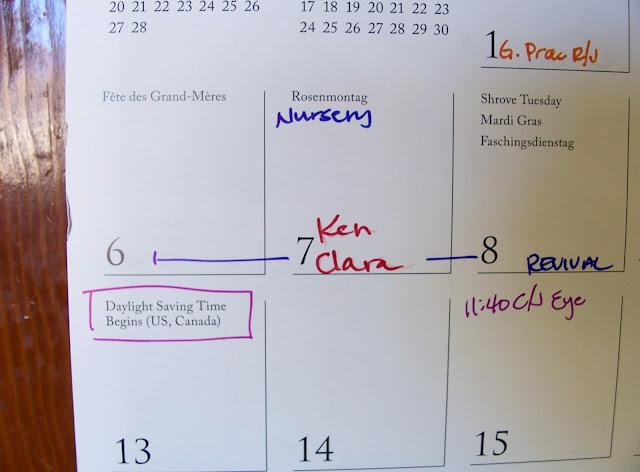 20 21 22 23 24 25 26
27 28
17 18 19 20 21 22 23
24 25 26 27 28 29 30
1 G. Prac R/J
Fête des Grand-Mères
6
Rosenmontag
Nursery
7 Ken
Clara
Shrove Tuesday
Mardi Gras
Faschingsdienstag
8 REVIVAL
Daylight Saving Time
Begins (US, Canada)
13
14
11:40 C/J Eye
15